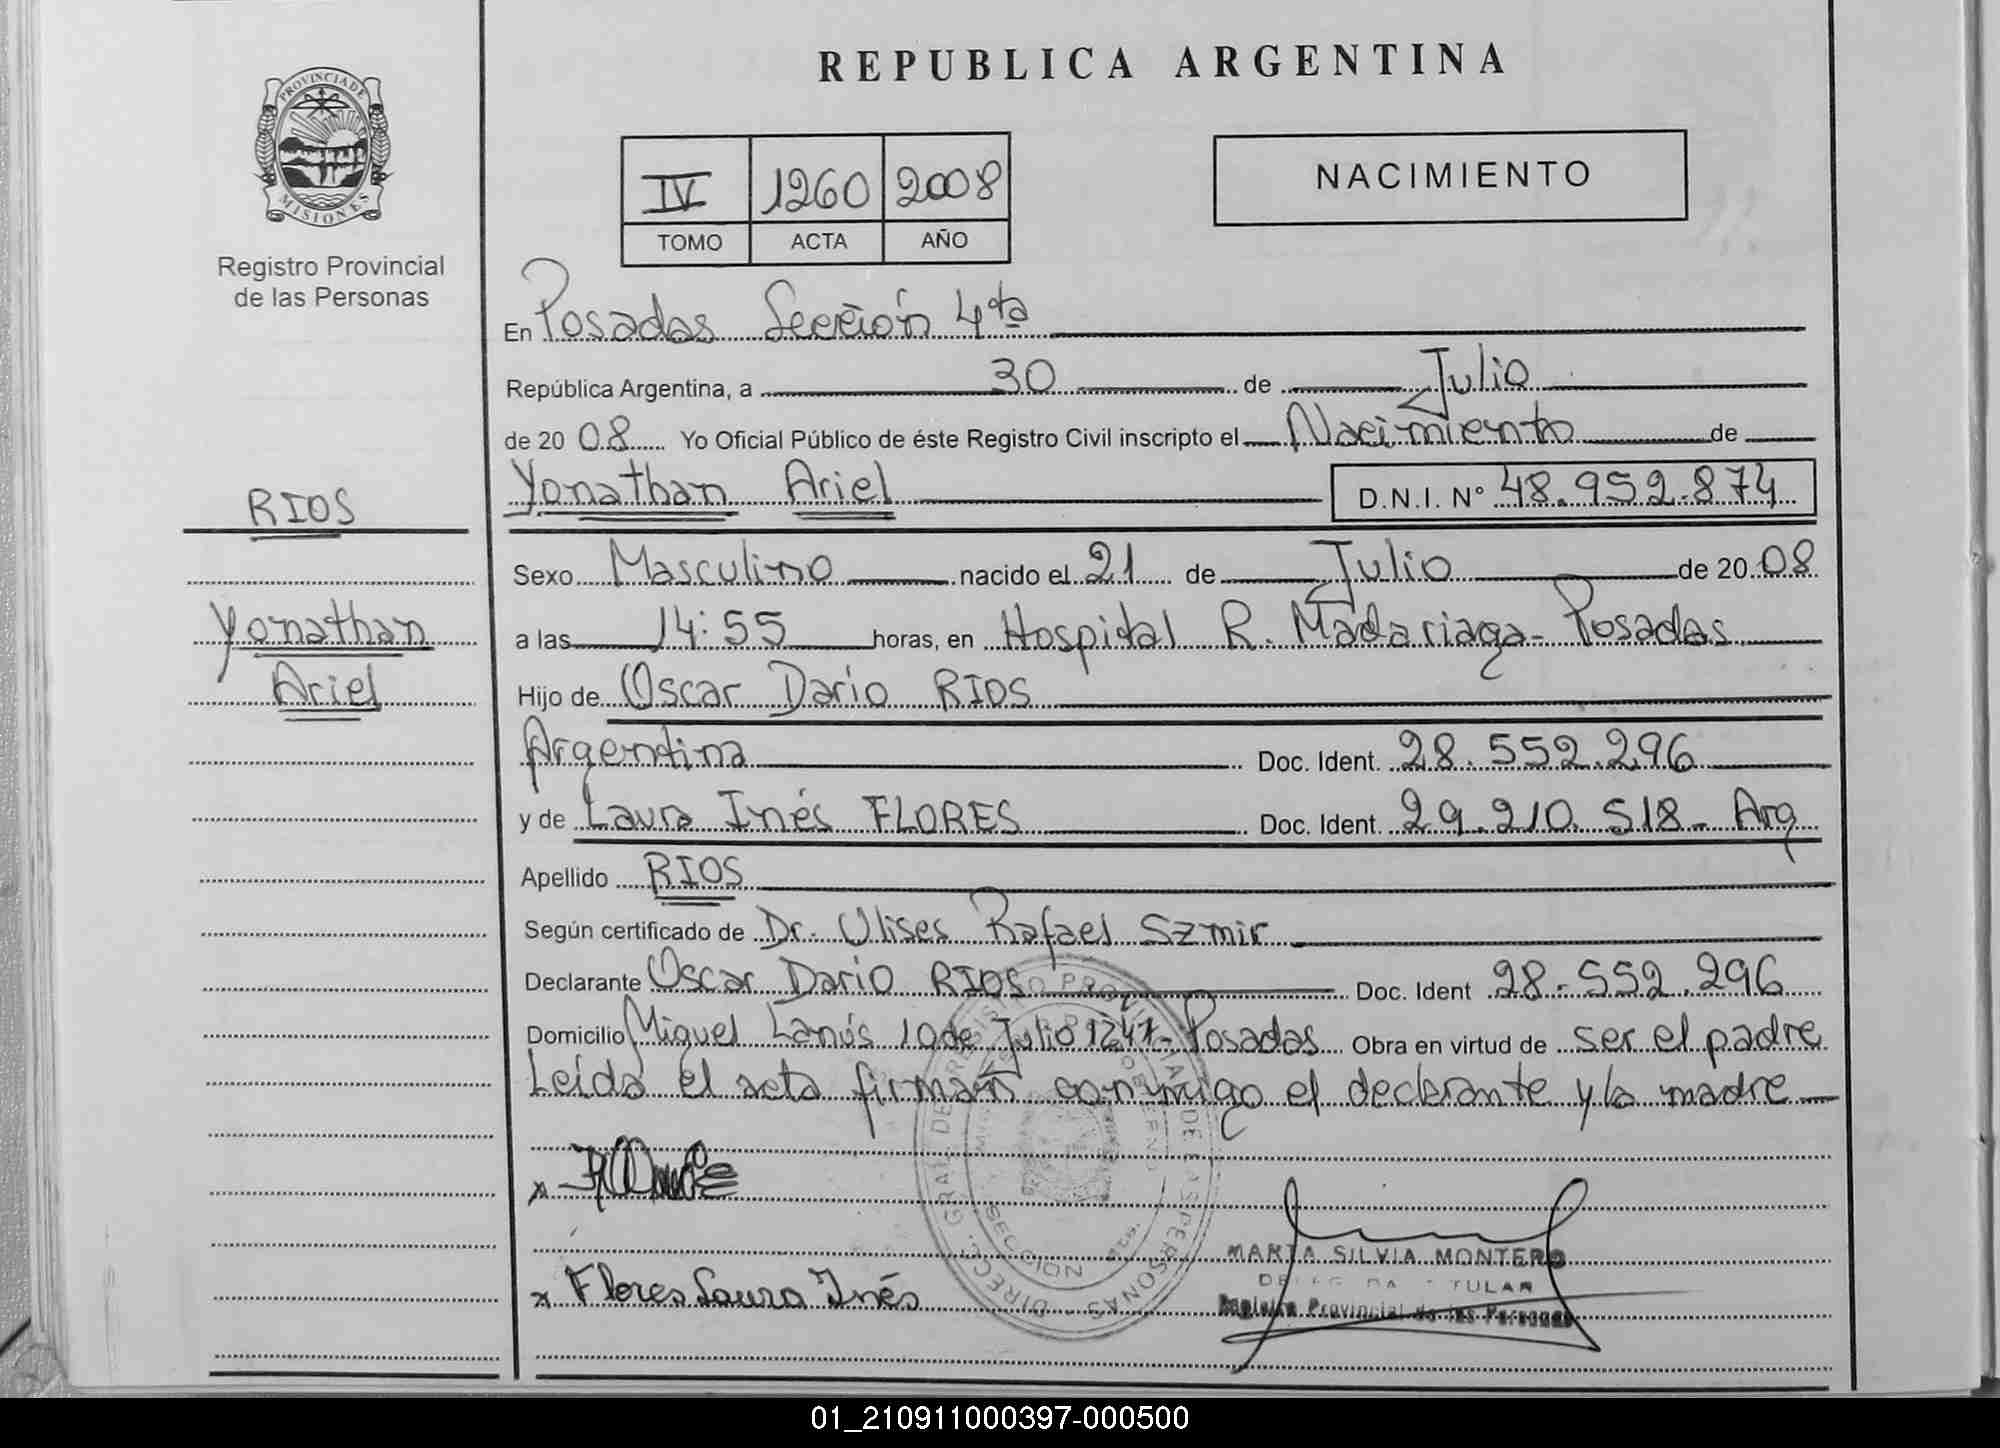 PROVINCIA DE
MISIONES
Registro Provincial
de las Personas
REPUBLICA ARGENTINA
IV 1260 2008
TOMO ACTA AÑO
NACIMIENTO
En Posadas Sección 4ta
República Argentina, a 30 de Julio
de 20 08 Yo Oficial Público de éste Registro Civil inscripto el Nacimiento de
Yonathan Ariel D.N.I. N° 48.952.874
RIOS
Yonathan
Ariel
Sexo Masculino nacido el 21 de Julio de 20 08
a las 14:55 horas, en Hospital R. Madariaga - Posadas
Hijo de Oscar Dario RIOS
Argentina Doc. Ident. 28.552.296
y de Laura Inés FLORES Doc. Ident. 29.210.518 - Arg
Apellido RIOS
Según certificado de Dr. Ulises Rafael Szmir
Declarante Oscar Dario RIOS Doc. Ident 28.552.296
Domicilio Miguel Lanús 10 de Julio 1247 - Posadas Obra en virtud de ser el padre
Leída el acta firman conmigo el declarante y la madre
x
x Flores Laura Inés
DIRECC. GRAL. DE REGISTRO PROVINCIAL DE LAS PERSONAS
SECCION
MARTA SILVIA MONTERO
Registro Provincial de las Personas
01_210911000397-000500